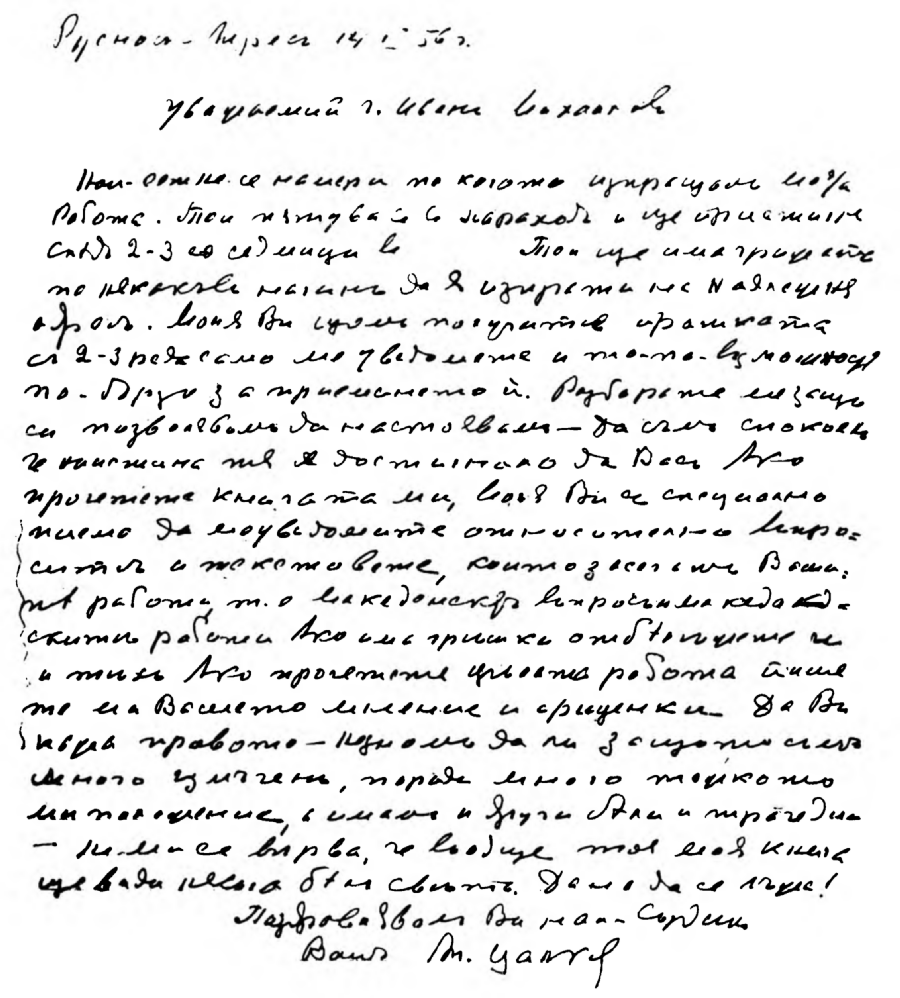 14 I 56 г.
Уважаемий г. Иванъ Михаиловъ
Най-сетне се намери по когото изпращамъ моята
работа. Той пътува съ параходъ и ще пристигне
следъ 2-3 седмици въ Той ще има грижата
по некакъвъ начинъ да я изпрати на
адресъ. Моля Ви щомъ получите пратката
съ 2-3 реда само ме уведомете и то по-възможность
по-бърже за приемането й. Разбирате ме защо
си позволявамъ да настоявамъ — да съмъ спокоенъ
че наистина тя е достигнала до Васъ. Ако
прочетете книгата ми, моля Ви се специално
писмо да ме уведомите относително въпро-
ситъ и текстовете, които засегатъВаши-
тѣ работи, т. е. македонски въпросъ и македон-
скитъ работи. Ако има грешки отбележете ги
и тяхъ. Ако прочетете цялата работа пише-
те ми Вашето мнение и преценки. Да Ви
кажа правото — не знамъ дали защото съмъ
много измъченъ, поради много тежкото
ми положение, а имамъ и други беди и трагедии
— не ми се вярва, че въобще тоя моя книга
ще види некога бѣлъ светъ. Дано да се лъжа!
Поздравлявамъ Ви най-сърдечно
Вашъ Цанков